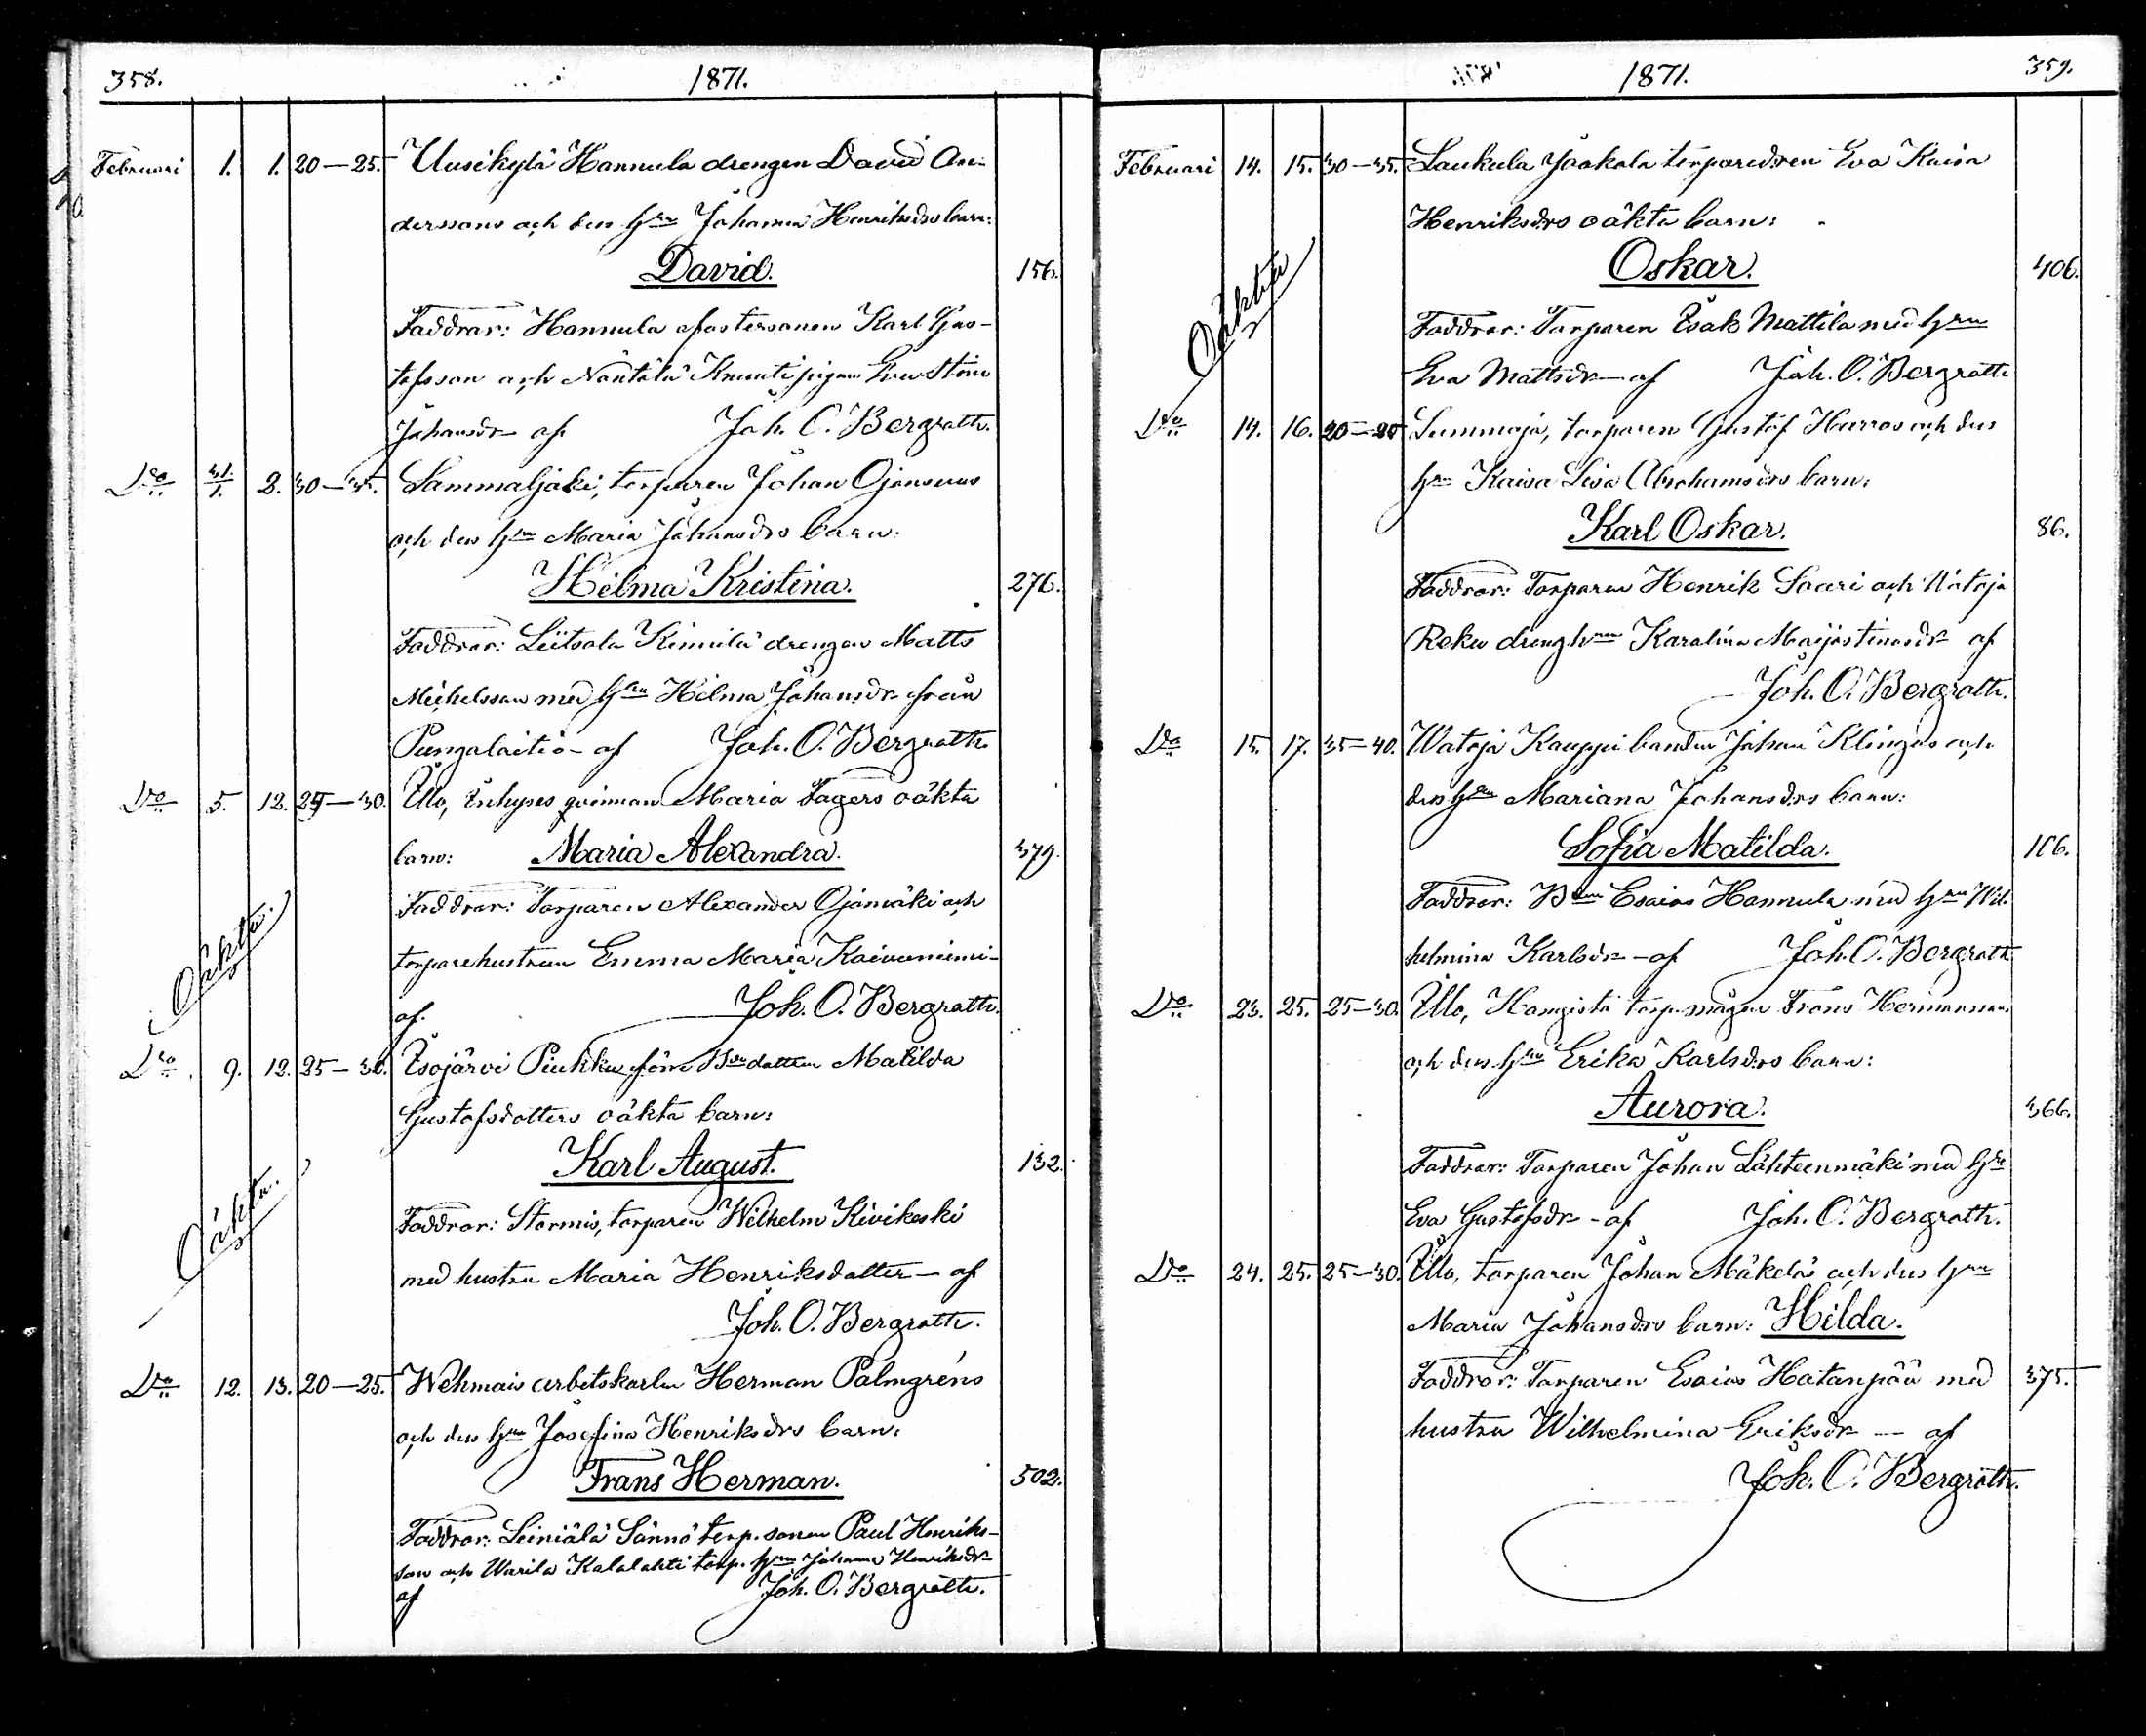 358. 1871.
Februari 1. 1. 20—25. Uusikylä Hannula drengen David An-
derssons och dess Hru Johanna Henriksdrs barn:
David. 156.
Faddrar: Hannula fostersonen Karl Gus-
tafsson och Näntälä Knuuti pigan Eva Stina
Johansdr af Joh. O. Bergroth.
Do 31/1. 2. 30—35. Sammaljoki, torparen Johan Ojansuus
och dess Hru Maria Johansdrs barn:
Hilma Kristina. 276.
Faddrar: Liitsola Kimilä drengen Matts
Michelsson med Hru Hilma Johansdr från
Pungalaitio - af Joh. O. Bergroth.
Do 5. 12. 25—30. Illo, Inhyses qvinnan Maria Fagers oäkta
barn: Maria Alexandra. 379.
Faddrar: Torparen Alexander Ojamäki och
Oäkta.
torparehustrun Emma Maria Kaivoniemi-
af. Joh. O. Bergroth.
Do 9. 12. 25—30. Isojärvi Piukku förre Bdedottren Matilda
Gustafsdotters oäkta barn:
Karl August. 132.
Oäkta.
Faddrar: Stormis, torparen Wilhelm Kivikoski
med hustru Maria Henriksdotter — af
Joh. O. Bergroth.
Do 12. 13. 20—25. Wehmais arbetskarlen Herman Palmgréns
och dess Hru Josefina Henriksdrs barn:
Frans Herman. 502.
Faddrar: Leiniälä Sännö torp. sonen Paul Henriks-
son och Warila Kalalahti torp. Hru Johanna Henriksdr
af Joh. O. Bergroth.
1871. 359.
Februari 14. 15. 30—35. Laukula Jaakola torparedren Eva Kaisa
Henriksdrs oäkta barn:
Oskar. 406.
Oäkta
Faddrar: Torparen Isak Mattila med Hru
Eva Mattsdr — af Joh. O. Bergroth.
Do 14. 16. 20—25 Summaja, torparen Gustaf Harras och dess
Hru Kaisa Lisa Abrahamsdrs barn:
Karl Oskar. 86.
Faddrar: Torparen Henrik Saari och Wataja
Reku dreng hru Karolina Maijastinasdr af
Joh. O. Bergroth.
Do 15. 17. 35—40. Wataja Kauppi bonden Johan Klingas och
dess Hru Mariana Johansdrs barn:
Sofia Matilda. 106.
Faddrar: Bden Esaias Hannula med Hru Wil-
helmina Karlsdr - af Joh. O. Bergroth
Do 23. 25. 25—30. Illo, Hangista torp. mågen Frans Hermansson
och dess Hru Erika Karlsdrs barn:
Aurora. 366.
Faddrar: Torparen Johan Lähteenmäki med Hru
Eva Gustafsdr - af Joh. O. Bergroth.
Do 24. 25. 25—30. Illo, torparen Johan Mäkelä och dess Hru
Maria Johansdrs barn: Hilda.
Faddrar: Torparen Esaias Hatanpää med 375.
hustru Wilhelmina Eriksdr — af
Joh. O. Bergroth.